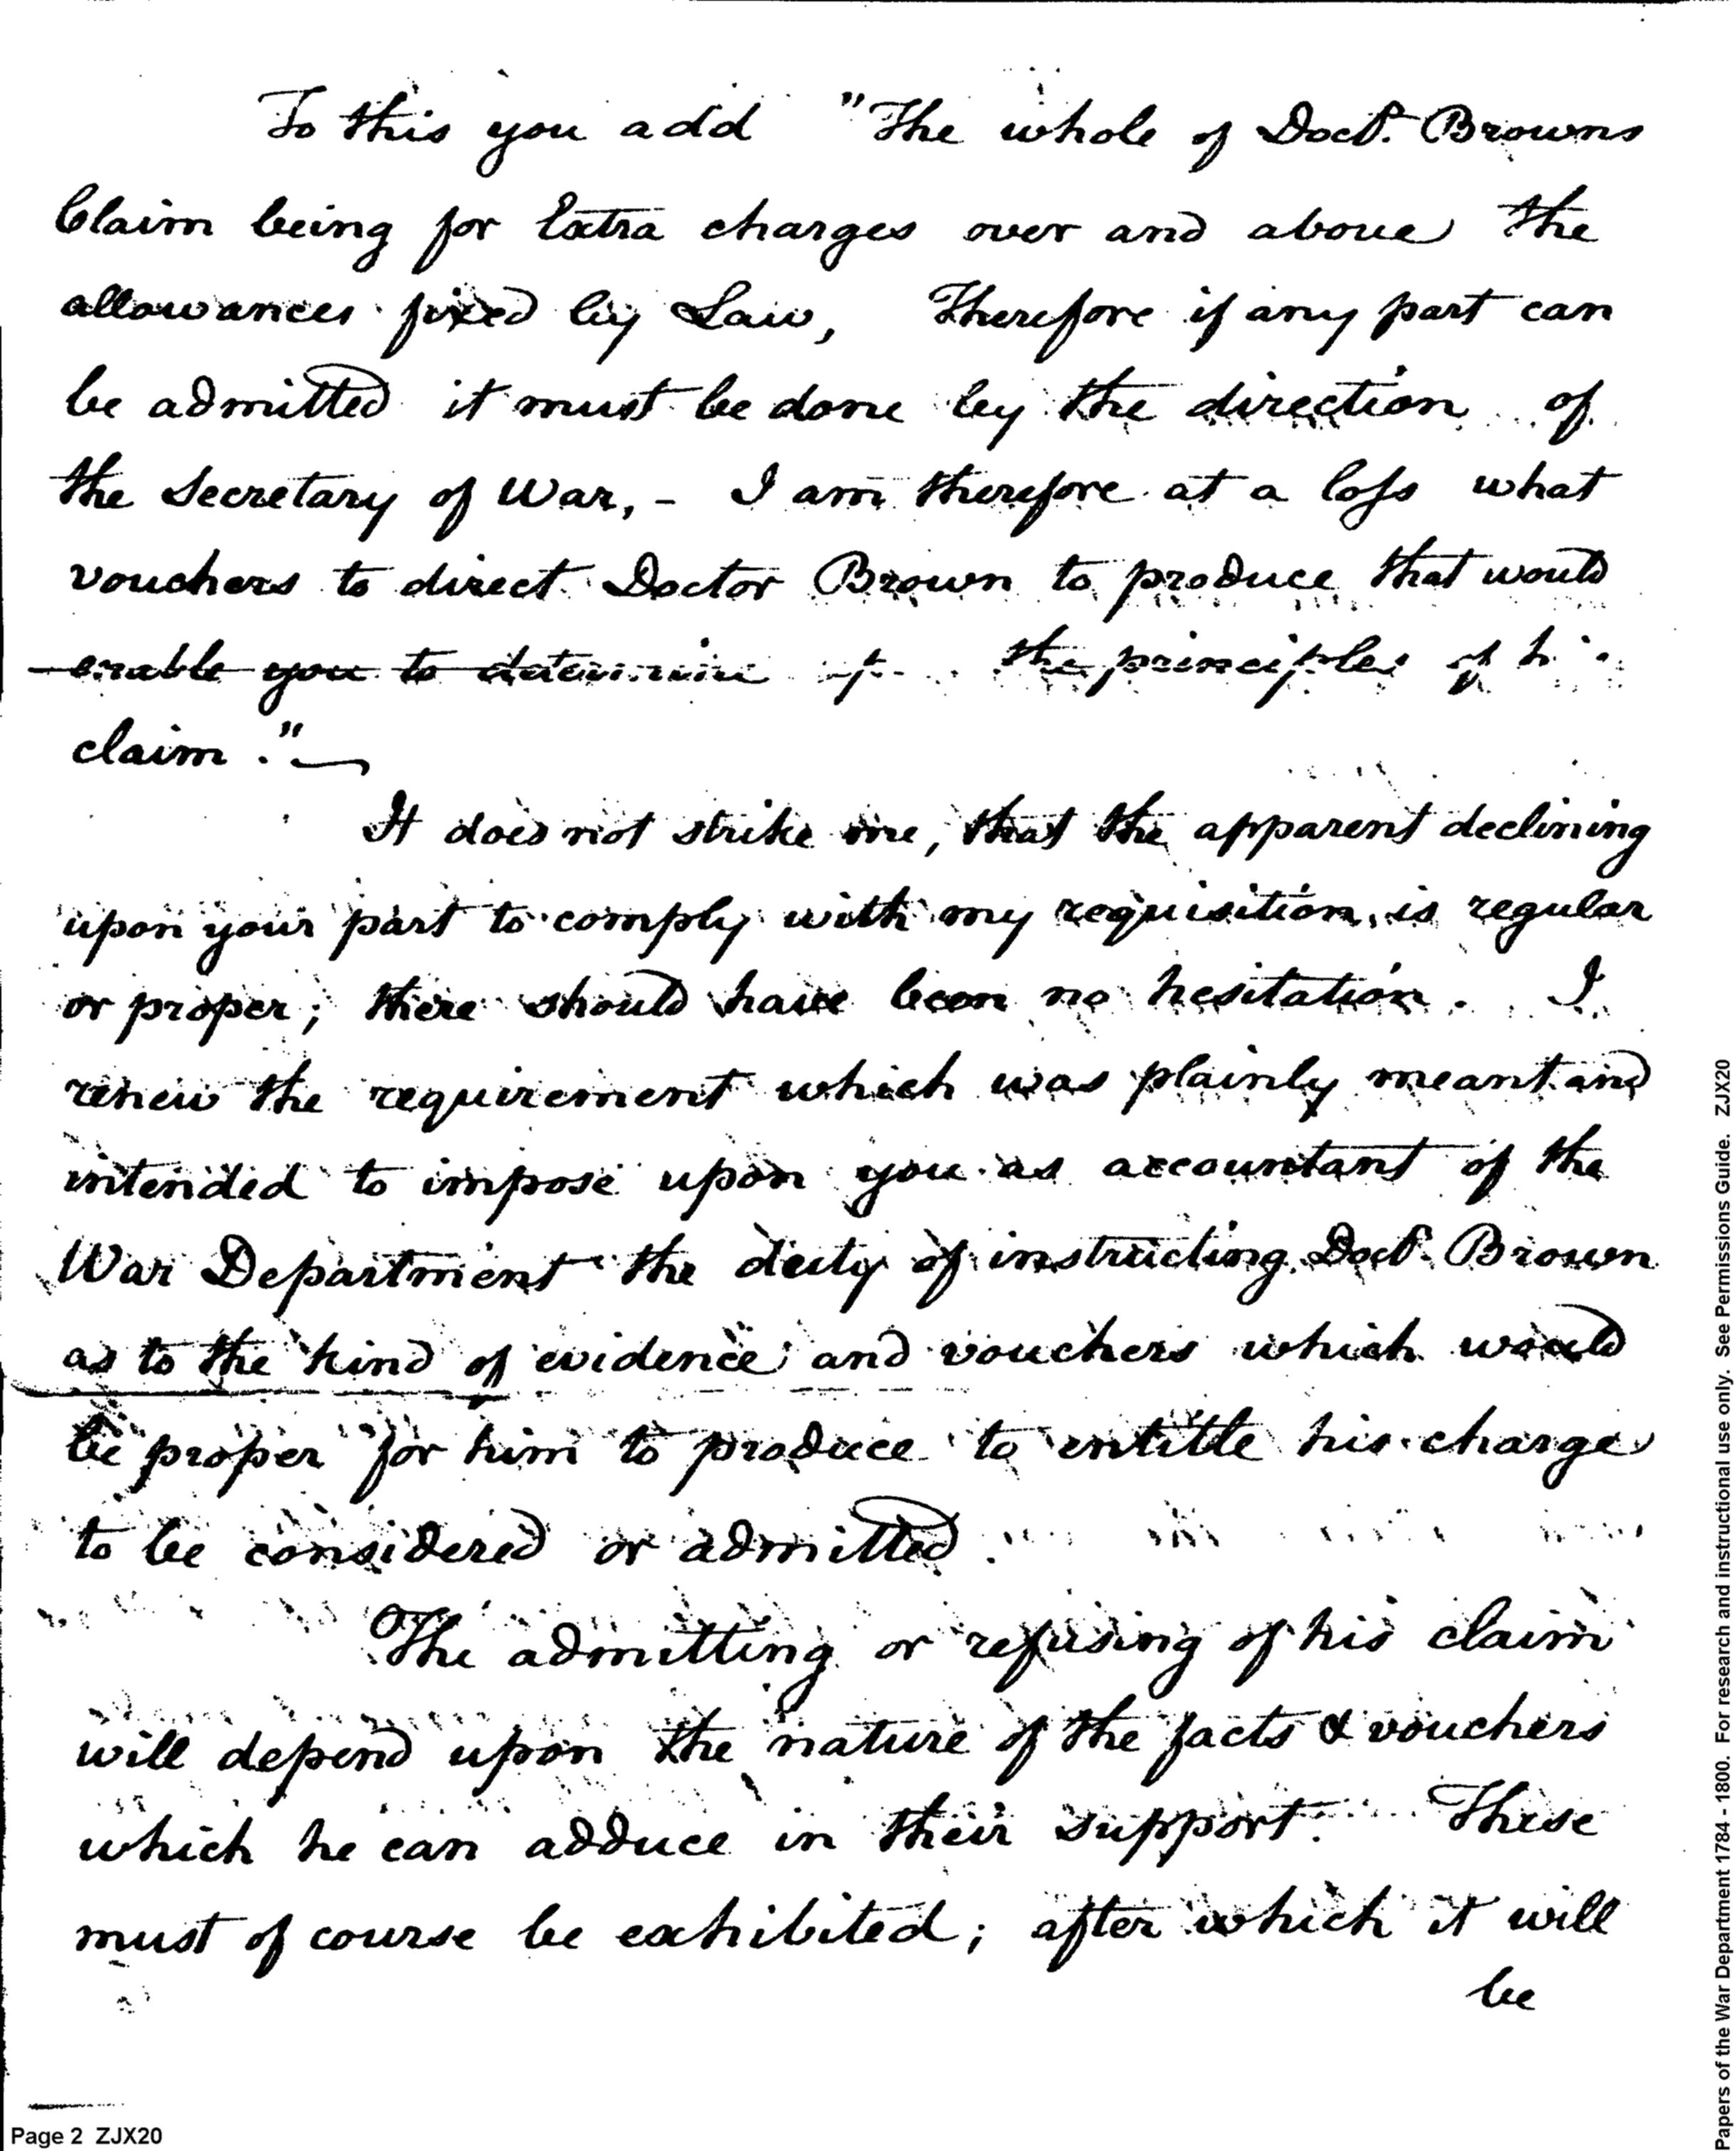 To this you add "The whole of Doctr. Browns
Claim being for Extra charges over and above the
allowances fixed by Law, Therefore if any part can
be admitted it must be done by the direction of
the Secretary of War, - I am therefore at a loss what
vouchers to direct Doctor Brown to produce that would
enable you to determine the principles of
claim."
It does not strike me, that the apparent declining
upon your part to comply with my requisition, is regular
or proper; there should have been no hesitation. I
renew the requirement which was plainly meant and
intended to impose upon you as accountant of the
War Department the duty of instructing Doctr. Brown
as to the kind of evidence and vouchers which would
be proper for him to produce to entitle his charge
to be considered or admitted.
The admitting or refusing of his claim
will depend upon the nature of the facts & vouchers
which he can adduce in their support. These
must of course be exhibited; after which it will
be
Page 2 ZJX20
Papers of the War Department 1784 - 1800. For research and instructional use only. See Permissions Guide. ZJX20